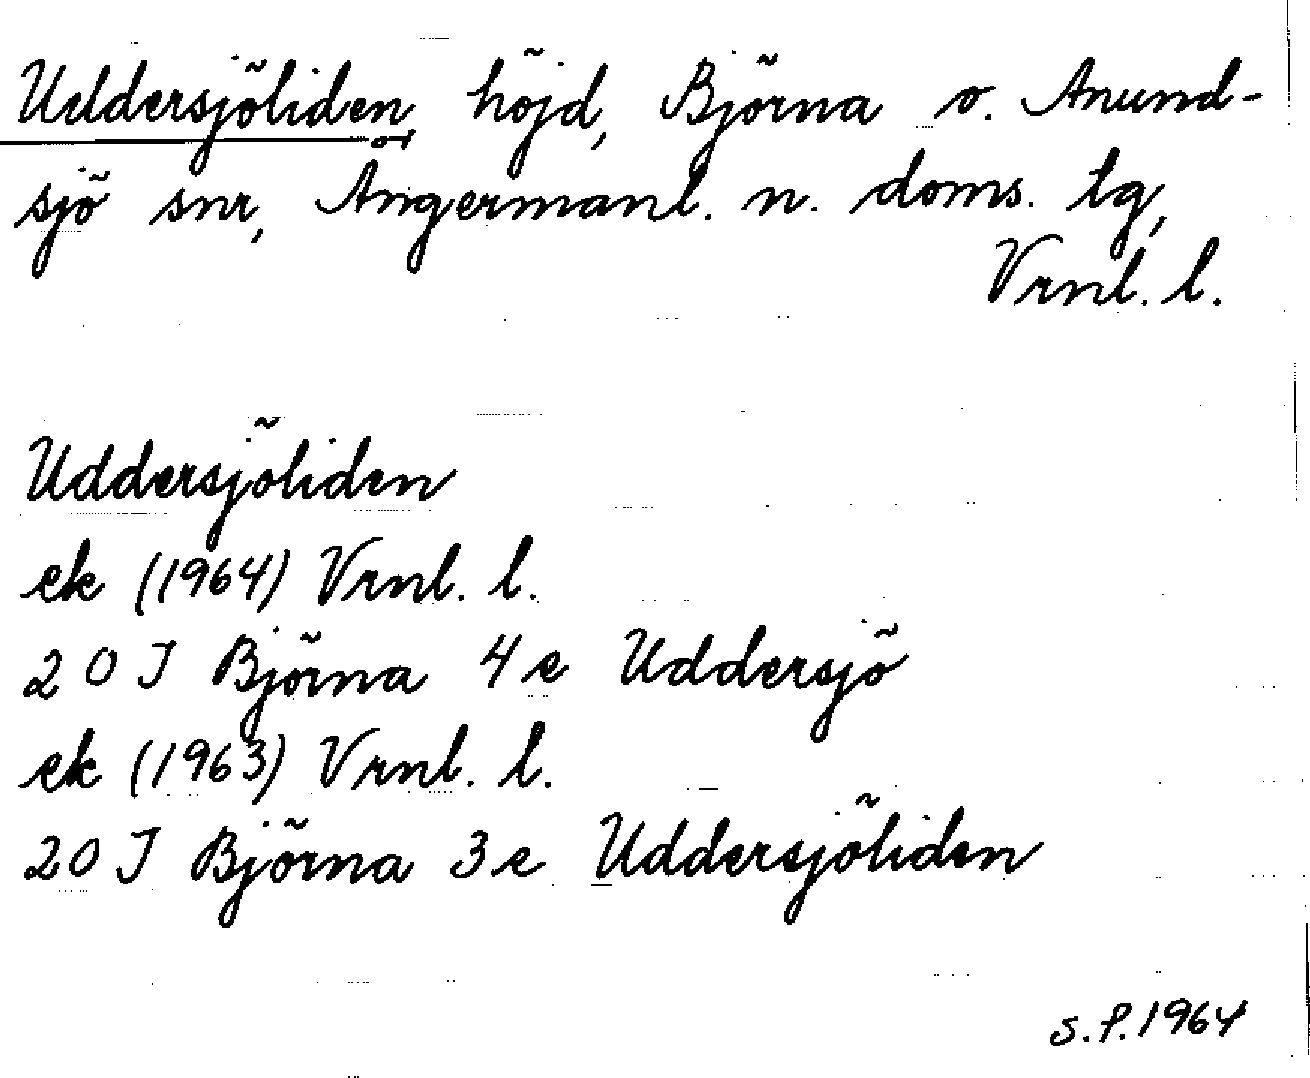 Uddersjöliden, höjd, Björna o. Anund-
sjö snr, Ångermanl. n. doms. tg,
Vrnl. l.
Uddersjöliden
ek (1964) Vrnl. l.
20 J Björna 4e Uddersjö
ek (1963) Vrnl. l.
20 J Björna 3e Uddersjöliden
S.P. 1964